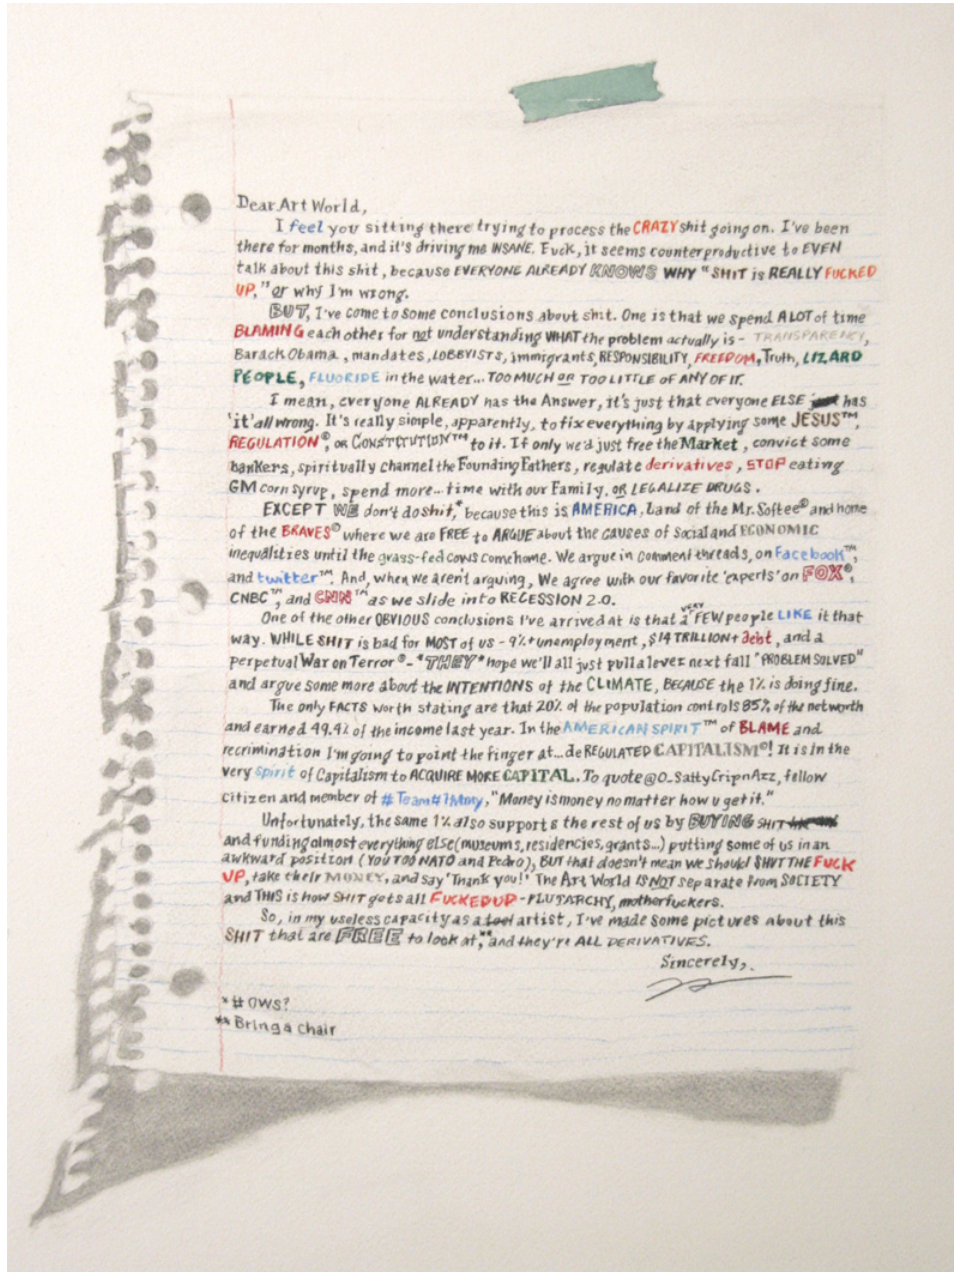 Dear Art World,
I feel you sitting there trying to process the CRAZY shit going on. I've been
there for months, and it's driving me INSANE. Fuck, it seems counterproductive to EVEN
talk about this shit, because EVERYONE ALREADY KNOWS WHY "SHIT is REALLY FUCKED
UP," or why I'm wrong.
BUT, I've come to some conclusions about shit. One is that we spend A LOT of time
BLAMING each other for not understanding WHAT the problem actually is - TRANSPARENCY,
Barack Obama, mandates, LOBBYISTS, immigrants, RESPONSIBILITY, FREEDOM, Truth, LIZARD
PEOPLE, FLUORIDE in the water... TOO MUCH OR TOO LITTLE OF ANY OF IT.
I mean, everyone ALREADY has the Answer, it's just that everyone ELSE just has
'it' all wrong. It's really simple, apparently, to fix everything by applying some JESUS™,
REGULATION®, or CONSTITUTION™ to it. If only we'd just free the Market, convict some
bankers, spiritually channel the Founding Fathers, regulate derivatives, STOP eating
GM corn syrup, spend more... time with our Family, OR LEGALIZE DRUGS.
EXCEPT WE don't do shit,* because this is AMERICA, Land of the Mr. Softee® and home
of the BRAVES® where we are FREE to ARGUE about the causes of Social and ECONOMIC
inequalities until the grass-fed cows come home. We argue in comment threads, on Facebook™,
and twitter™. And, when we aren't arguing, We agree with our favorite 'experts' on FOX®,
CNBC™, and CNN™ as we slide into RECESSION 2.0.
One of the other OBVIOUS conclusions I've arrived at is that a VERY FEW people LIKE it that
way. WHILE SHIT is bad for MOST of us - 9%+ unemployment, $14 TRILLION+ debt, and a
perpetual War on Terror® - *THEY* hope we'll all just pull a lever next fall "PROBLEM SOLVED"
and argue some more about the INTENTIONS of the CLIMATE, BECAUSE the 1% is doing fine.
The only FACTS worth stating are that 20% of the population controls 85% of the net worth
and earned 49.4% of the income last year. In the AMERICAN SPIRIT™ of BLAME and
recrimination I'm going to point the finger at... deREGULATED CAPITALISM®! It is in the
very spirit of Capitalism to ACQUIRE MORE CAPITAL. To quote @O_SattyCripnAzz, fellow
citizen and member of #Team#1Mmy, "Money is money no matter how u get it."
Unfortunately, the same 1% also supports the rest of us by BUYING SHIT
and funding almost everything else (museums, residencies, grants...) putting some of us in an
awkward position (YOU TOO NATO and Pedro), BUT that doesn't mean we should SHUT THE FUCK
UP, take their MONEY, and say 'Thank you!' The Art World IS NOT separate from SOCIETY
and THIS is how SHIT gets all FUCKED UP - PLUTARCHY, motherfuckers.
So, in my useless capacity as a tool artist, I've made some pictures about this
SHIT that are FREE to look at,** and they're ALL DERIVATIVES.
Sincerely,
*#OWS?
**Bring a chair